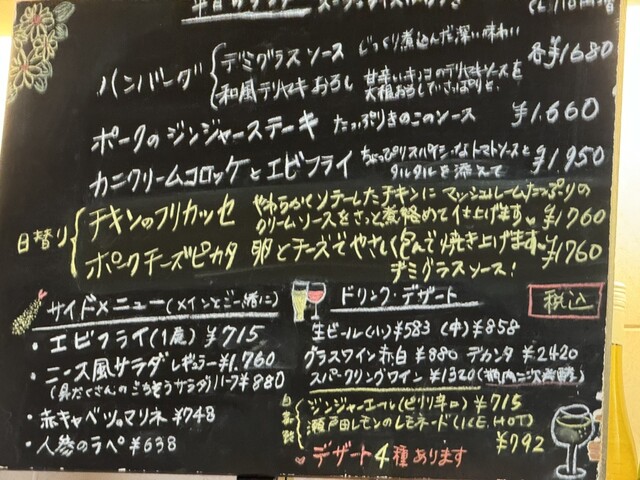 ハンバーグ デミグラスソース じっくり煮込んだ深い味わい
和風テリヤキおろし 甘辛いキノコのテリヤキソースを 大根おろしでさっぱりと 各¥1680
ポークのジンジャーステーキ たっぷりきのこのソース ¥1.660
カニクリームコロッケとエビフライ ちょっぴりスパイシーなトマトソースと タルタルを添えて ¥1.950
日替り チキンのフリカッセ やわらかくソテーしたチキンにマッシュルームたっぷりの
クリームソースをさっと煮絡めて仕上げます ¥1760
ポークチーズピカタ 卵とチーズでやさしく包んで焼き上げます ¥1760
デミグラスソース!
サイドメニュー(メインとご一緒に)
・エビフライ(1尾) ¥715
・ニース風サラダ レギュラー¥1.760
(具だくさんのごちそうサラダ) ハーフ¥880
・赤キャベツのマリネ ¥748
・人参のラペ ¥638
ドリンク・デザート 税込
生ビール(小)¥583 (中)¥858
グラスワイン赤白 ¥880 デカンタ ¥2420
スパークリングワイン ¥1320(瓶内二次発酵)
自家製 ジンジャーエール(ピリ辛口) ¥715
瀬戸田レモンのレモネード(ICE.HOT) ¥792
デザート4種あります